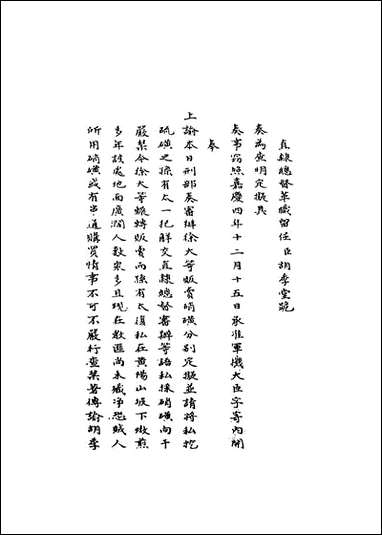 直隸總督革職留任臣胡季堂跪
奏為查明定擬具
奏事竊照嘉慶四年十二月十五日承准軍機大臣字寄內開
奉
上諭本日刑部奏審辦徐大等販賣硝磺分別定擬並請將私挖
硫磺之孫有太一犯解交直隸總督審辦等語私採硝磺向干
嚴禁今徐大等輾轉販賣而孫有太復私在黃陽山坡下墩煎
多年該處地面廣濶人數眾多且現在教匪尚未蕆淨恐賊人
所用硝磺或有串通購買情事不可不嚴行查禁著傳諭胡季